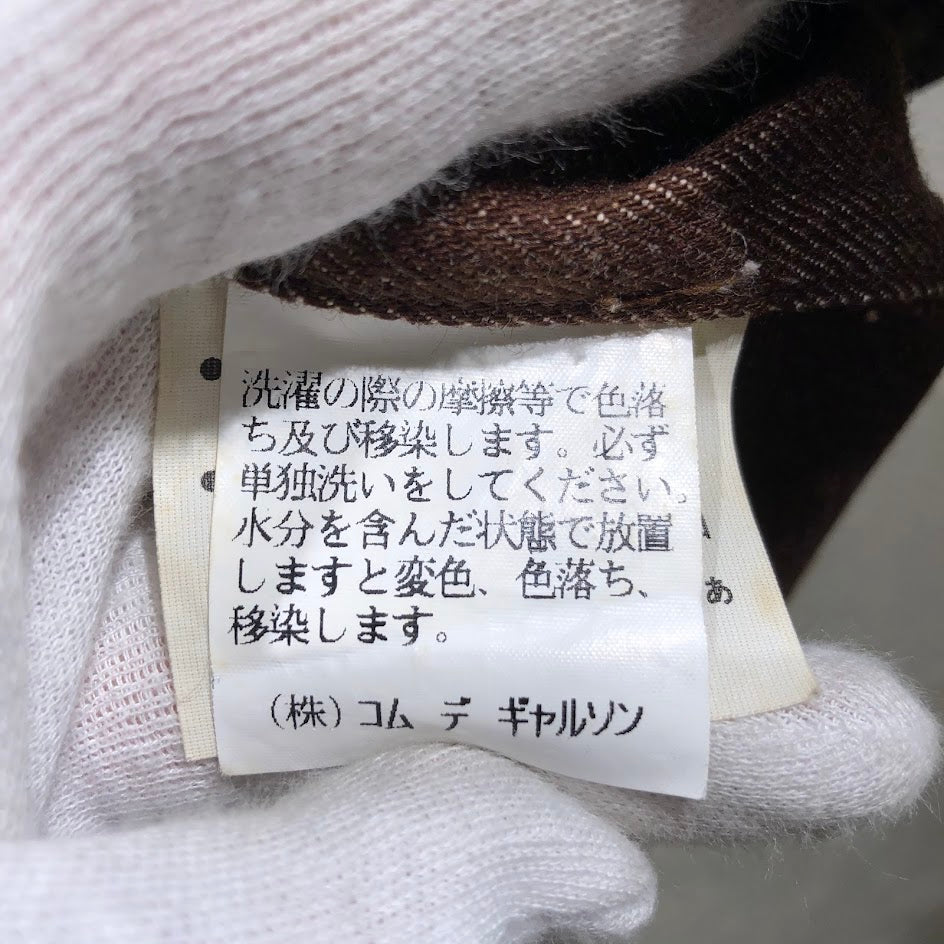 洗濯の際の摩擦等で色落
ち及び移染します。必ず
単独洗いをしてください。
水分を含んだ状態で放置
しますと変色、色落ち、
移染します。
(株)コム デ ギャルソン
あ